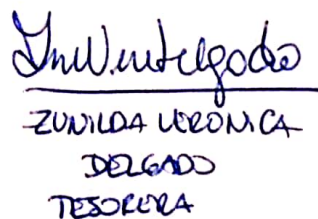 ZUNILDA VERONICA
DELGADO
TESORERA